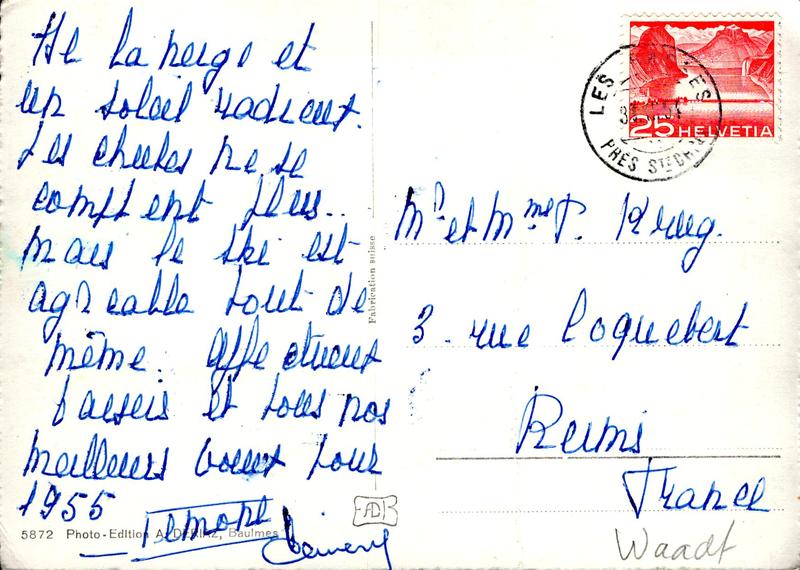 De la neige et
un soleil radieux.
Les chutes ne se
comptent plus..
mais le ski est
agréable tout de
même. Affectueux
baisers et tous nos
meilleurs voeux pour
1955
5872 Photo-Edition A. DERIAZ, Baulmes
Fabrication suisse
AD
25 HELVETIA
LES
PRÈS STE CROIX
Mr et Mme P. Krug.
3. rue Coquebert
Reims
France
Waadt